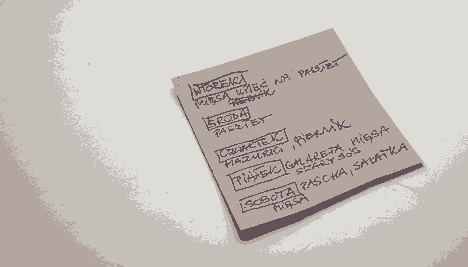 WTOREK
MIĘSA UPIEC NA PASZTET
PIERNIK
ŚRODA
PASZTET
CZWARTEK
MAZURKI, PIERNIK
PIĄTEK GALARETA MIĘSA
SZARY SOS
SOBOTA PASCHA, SAŁATKA
MIĘSA